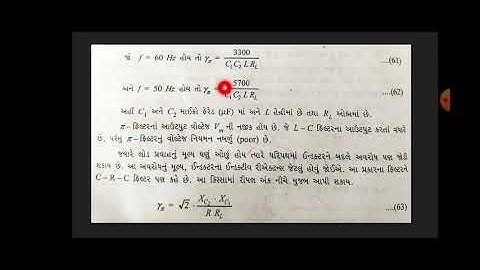 જો f = 60 Hz હોય તો γπ = 3300 / C₁ C₂ L R_L ....(61)
અને f = 50 Hz હોય તો γπ = 5700 / C₁ C₂ L R_L ....(62)
અહીં C₁ અને C₂ માઈક્રો ફેરેડ (μF) માં અને L હેન્રીમાં છે તથા R_L ઓહ્મમાં છે.
π–ફિલ્ટરનાં આઉટપુટ વોલ્ટેજ V_m ની નજીક હોય છે. જે L – C ફિલ્ટરના આઉટપુટ કરતાં વધારે
છે, પરંતુ π–ફિલ્ટરનું વોલ્ટેજ નિયમન નબળું (poor) છે.
જ્યારે લોડ પ્રવાહનું મૂલ્ય ઘણું ઓછું હોય ત્યારે પરિપથમાં ઈન્ડક્ટરને બદલે અવરોધ પણ જોડી
શકાય છે. આ અવરોધનું મૂલ્ય, ઈન્ડક્ટરના ઈન્ડક્ટીવ રીએક્ટન્સ જેટલું હોવું જોઈએ. આ પ્રકારના ફિલ્ટરને
C – R – C ફિલ્ટર પણ કહે છે. આ કિસ્સામાં રીપલ અંક નીચે મુજબ આપી શકાય.
γπ = √2 · X_C₂ · X_C₁ / R R_L ....(63)